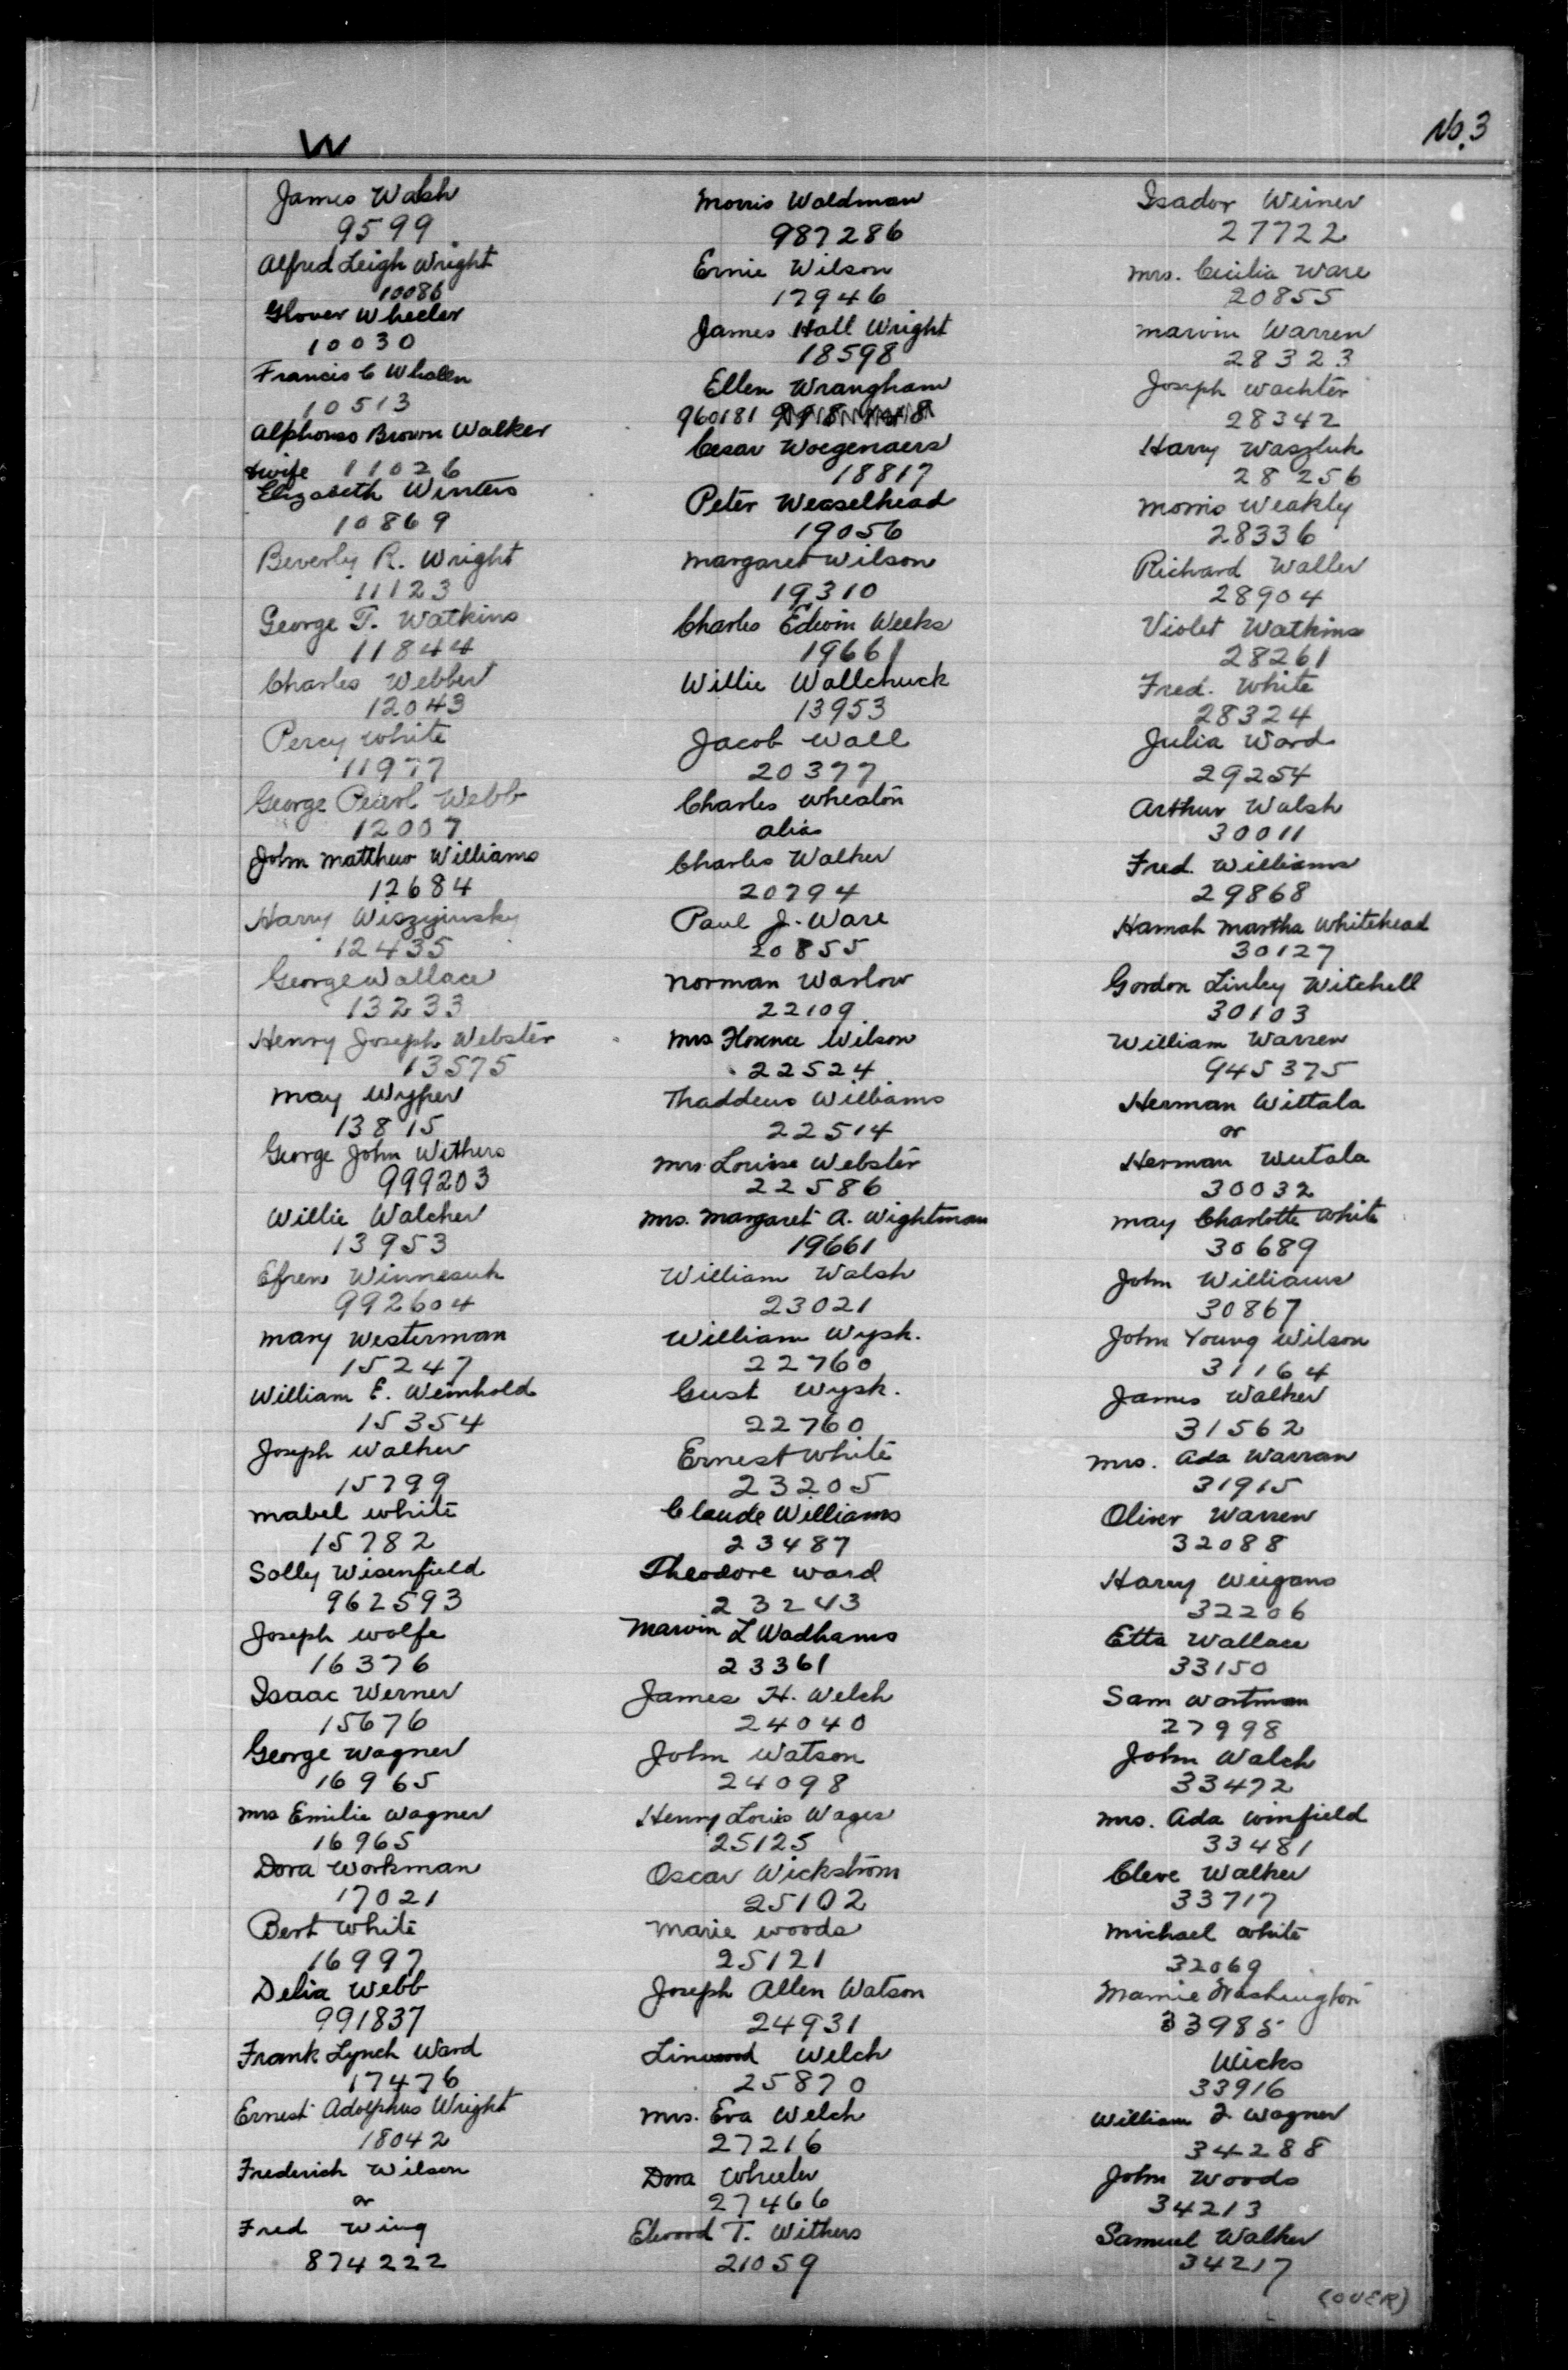 W
No. 3
James Walsh
9599
Alfred Leigh Wright
10086
Glover Wheeler
10030
Francis C Whalen
10513
Alphonso Brown Walker
& wife 11026
Elizabeth Winters
10869
Beverly R. Wright
11123
George T. Watkins
11844
Charles Webber
12043
Percy White
11977
George Pearl Webb
12007
John Matthew Williams
12684
Harry Wiszyinsky
12435
George Wallace
13233
Henry Joseph Webster
13575
May Wyper
13815
George John Withers
999203
Willie Walcher
13953
Efrem Winnesuk
992604
Mary Westerman
15247
William E. Weinhold
15354
Joseph Walker
15799
Mabel White
15782
Solly Wisenfield
962593
Joseph Wolfe
16376
Isaac Werner
15676
George Wagner
16965
Mrs Emilie Wagner
16965
Dora Workman
17021
Bert White
16997
Delia Webb
991837
Frank Lynch Ward
17476
Ernest Adolphus Wright
18042
Frederick Wilson
or
Fred Wing
874222
Morris Waldman
987286
Ernie Wilson
17946
James Hall Wright
18598
Ellen Wrangham
960181
Cesar Woegenaers
18817
Peter Weaselhead
19056
Margaret Wilson
19310
Charles Edwin Weeks
19661
Willie Wallchuck
13953
Jacob Wall
20377
Charles Wheaton
alias
Charles Walker
20794
Paul J. Ware
20855
Norman Warlow
22109
Mrs Florence Wilson
22524
Thaddeus Williams
22514
Mrs Louise Webster
22586
Mrs. Margaret A. Wightman
19661
William Walsh
23021
William Wysk.
22760
Gust Wysk.
22760
Ernest White
23205
Claude Williams
23487
Theodore Ward
23243
Marvin L Wadhams
23361
James H. Welch
24040
John Watson
24098
Henry Louis Wages
25125
Oscar Wickstrom
25102
Marie Woods
25121
Joseph Allen Watson
24931
Linwood Welch
25870
Mrs. Eva Welch
27216
Dora Wheeler
27466
Elwood T. Withers
21059
Isador Weiner
27722
Mrs. Cecilia Ware
20855
Marvin Warren
28323
Joseph Wachter
28342
Harry Waszluk
28256
Morris Weakly
28336
Richard Waller
28904
Violet Watkins
28261
Fred. White
28324
Julia Ward
29254
Arthur Walsh
30011
Fred. Williams
29868
Hannah Martha Whitehead
30127
Gordon Linley Witchell
30103
William Warren
945375
Herman Wittala
or
Herman Wutala
30032
May Charlotte White
30689
John Williams
30867
John Young Wilson
31164
James Walker
31562
Mrs. Ada Warran
31915
Oliver Warren
32088
Harry Weigans
32206
Etta Wallace
33150
Sam Wortman
27998
John Walch
33472
Mrs. Ada Winfield
33481
Cleve Walker
33717
Michael White
32069
Mamie Washington
33985
Wicks
33916
William J Wagner
34288
John Woods
34213
Samuel Walker
34217
(OVER)